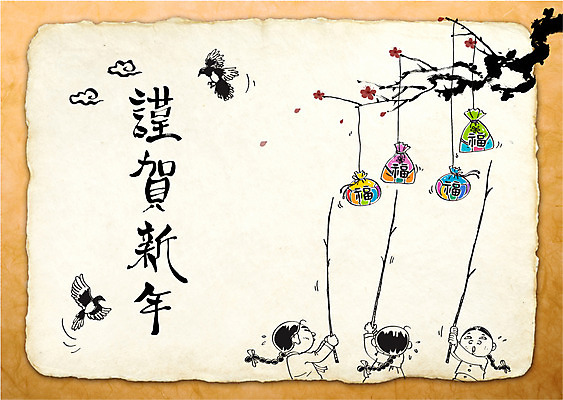 謹賀新年
福
福
福
福